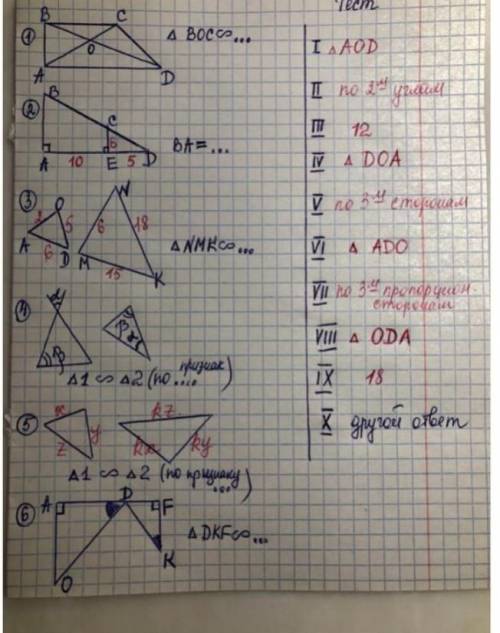 Тест
① B C O A D
Δ BOC ∾ ...
② B C 6 A 10 E 5 D
BA = ...
③ O 2 5 A 6 D N 6 18 M 15 K
Δ NMK ∾ ...
④ α β β α
Δ1 ∾ Δ2 (по признак....)
⑤ x y z kz kx ky
Δ1 ∾ Δ2 (по признаку ...)
⑥ A D F K O
Δ DKF ∾ ...
I Δ AOD
II по 2-м углам
III 12
IV Δ DOA
V по 3-м сторонам
VI Δ ADO
VII по 3-м пропорцион.
сторонам
VIII Δ ODA
IX 18
X другой ответ